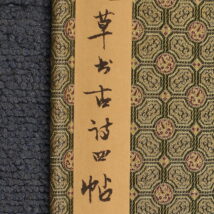 草书古诗四帖